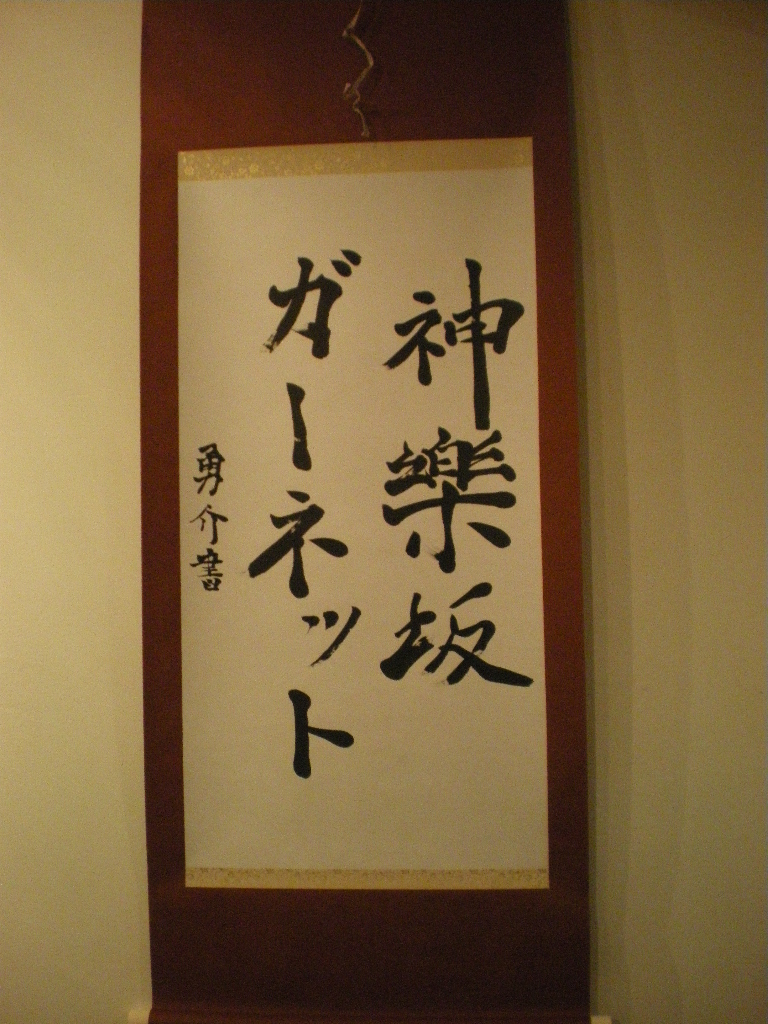 神樂坂
ガーネット
勇介書